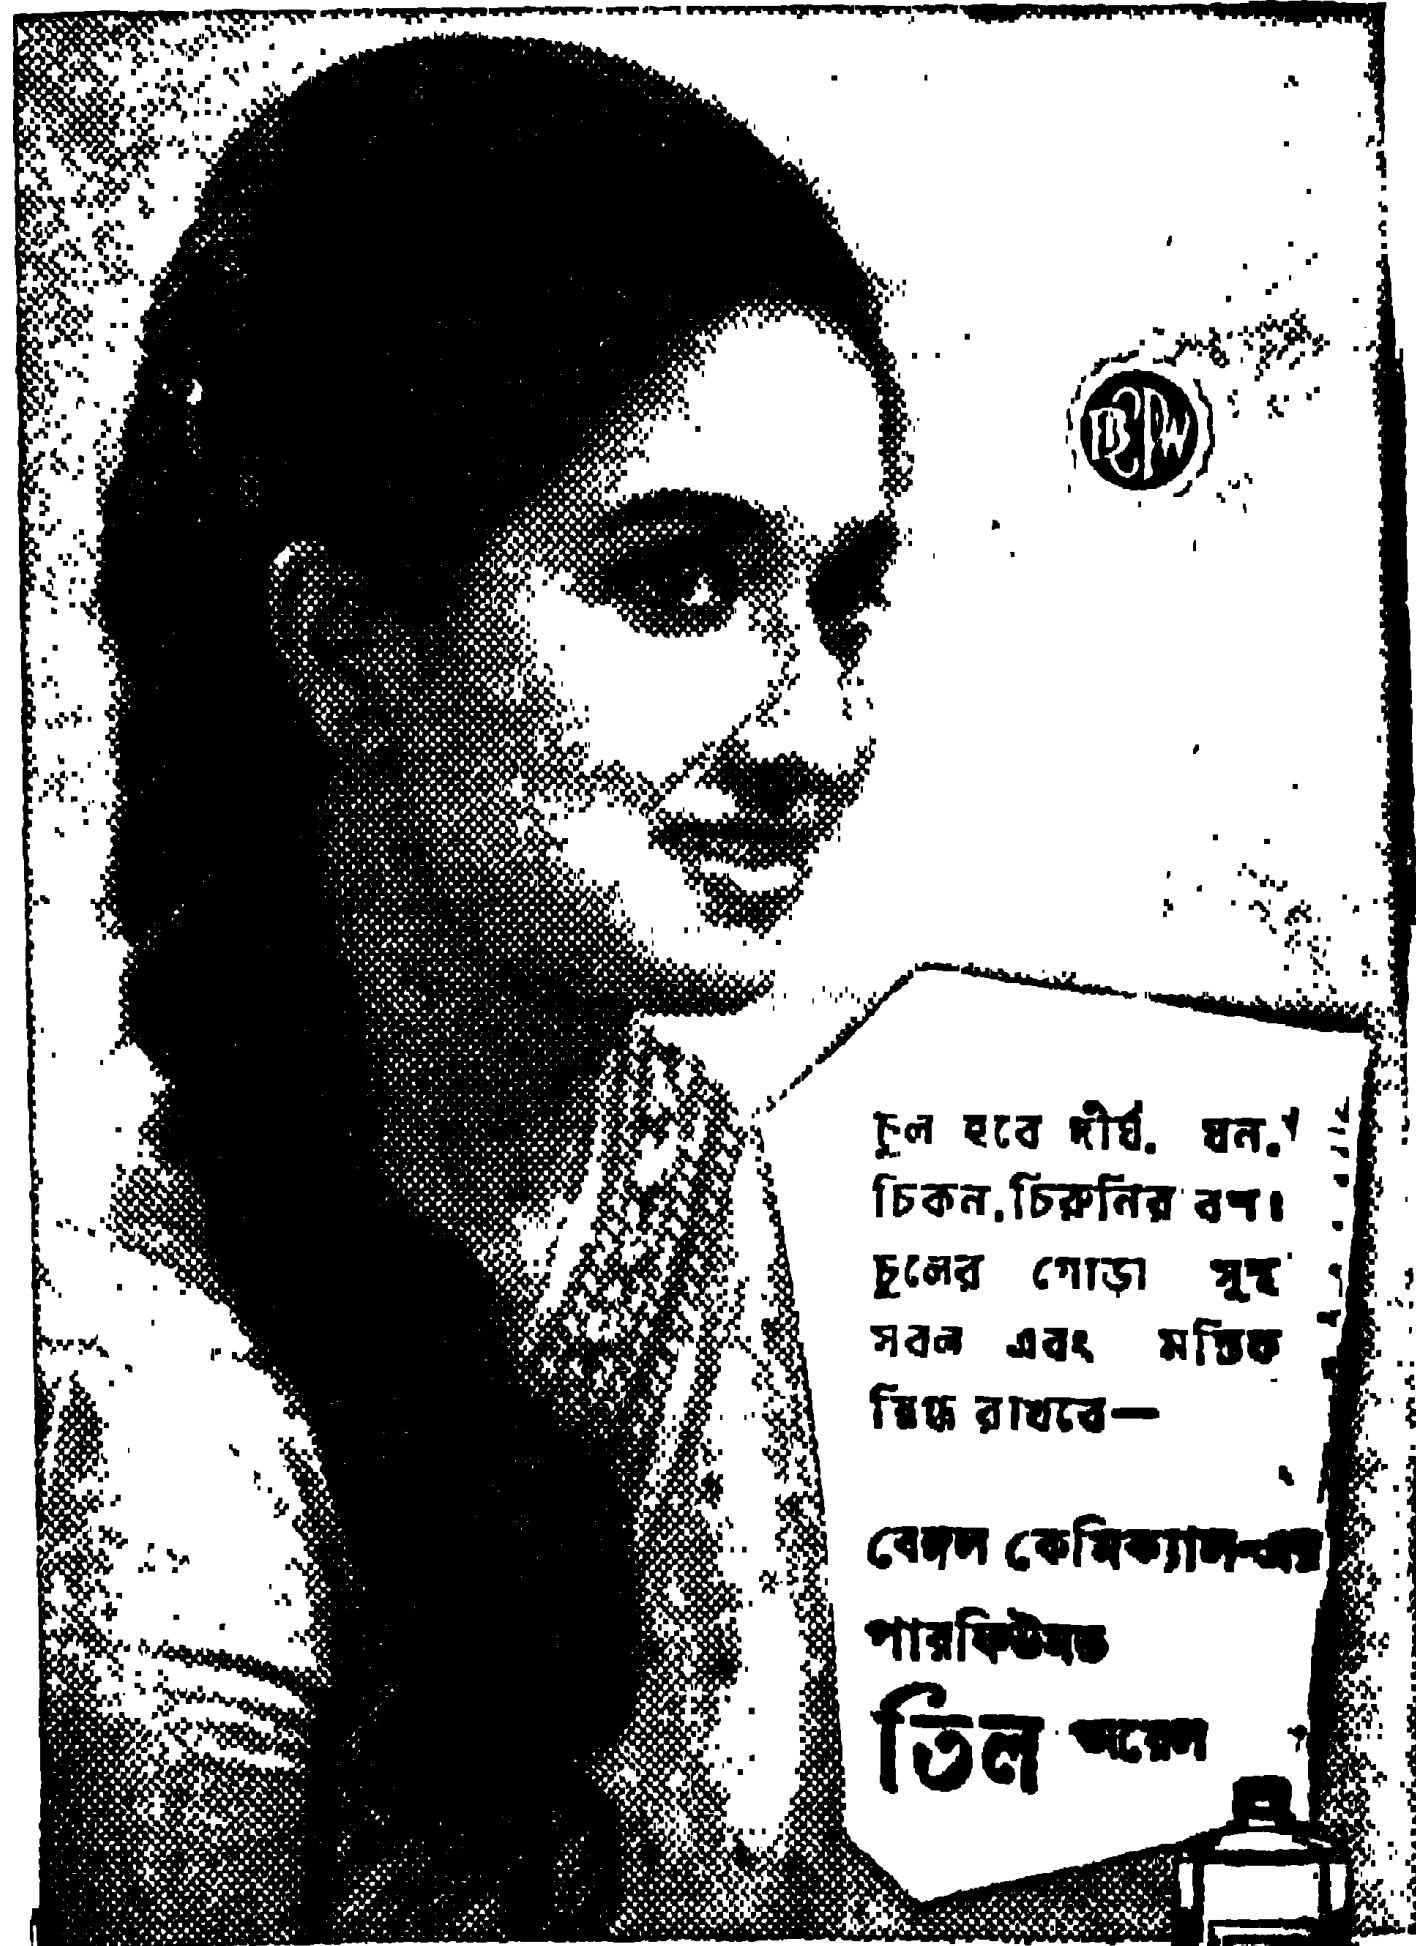 BCPW
চুল হবে দীর্ঘ, ঘন,
চিকন, চিরুনির বশ।
চুলের গোড়া সুস্থ
সবল এবং মস্তিষ্ক
স্নিগ্ধ রাখবে—
বেঙ্গল কেমিক্যাল-এর
পারফিউমড
তিল অয়েল